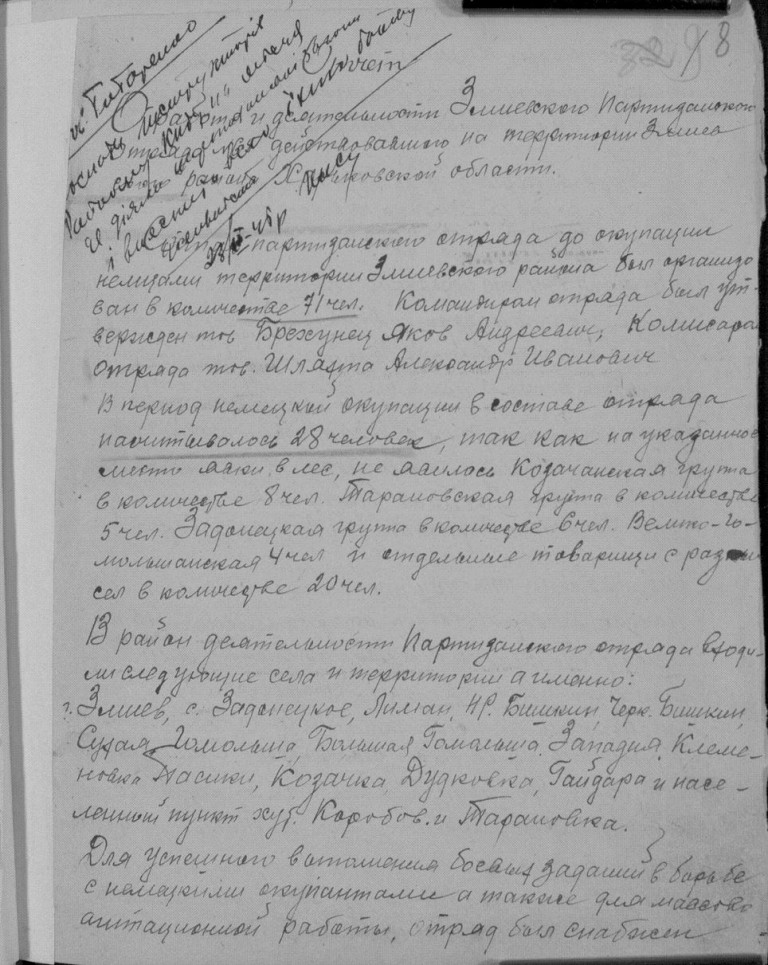 8
Отчет
О работе и деятельности Змиевского Партизанского
отряда действовавшего на территории Змиев
района Харьковской области.
партизанского отряда до окупации
немцами территории Змиевского района был организо
ван в количестве 71 чел. Командиром отряда был ут-
вержден тов Брехунец Яков Андреевич, Комисаром
отряда тов. Шляхта Александр Иванович
В период немецкой окупации в составе отряда
насчитывалось 28 человек, так как на указанное
место явки в лес, не явилось Козачанская группа
в количестве 8 чел. Тарановская группа в количестве
5 чел. Задонецкая группа в количестве 6 чел. Велико-Го-
мольшанская 4 чел и отдельные товарищи с разных
сел в количестве 20 чел.
В район деятельности Партизанского отряда входи-
ли следующие села и территории а именно:
г. Змиев, с. Задонецкое, Лиман, НР. Бишкин, Черк. Бишкин,
Сухая Гомольша, Большая Гомольша, Западня, Клеме-
новка Пасики, Козачка, Дудковка, Гайдара и насе-
ленный пункт хут. Коробов. и Тарановка.
Для успешного выполнения боевых заданий в борьбе
с немецкими окупантами а также для массово
агитационной работы, отряд был снабжен
т. Титаренко